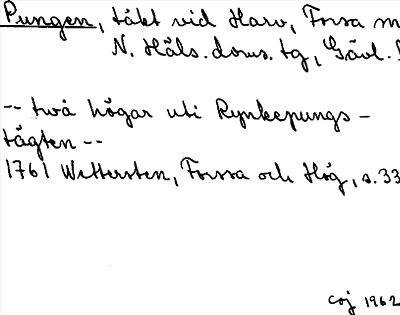 Pungen, täkt vid Harv, Forsa
N. Häls. doms. tg, Gävl.
-- två högar uti Rynkepungs-
tägten --
1761 Wettersten, Forssa och Hög, s. 33
coj 1962